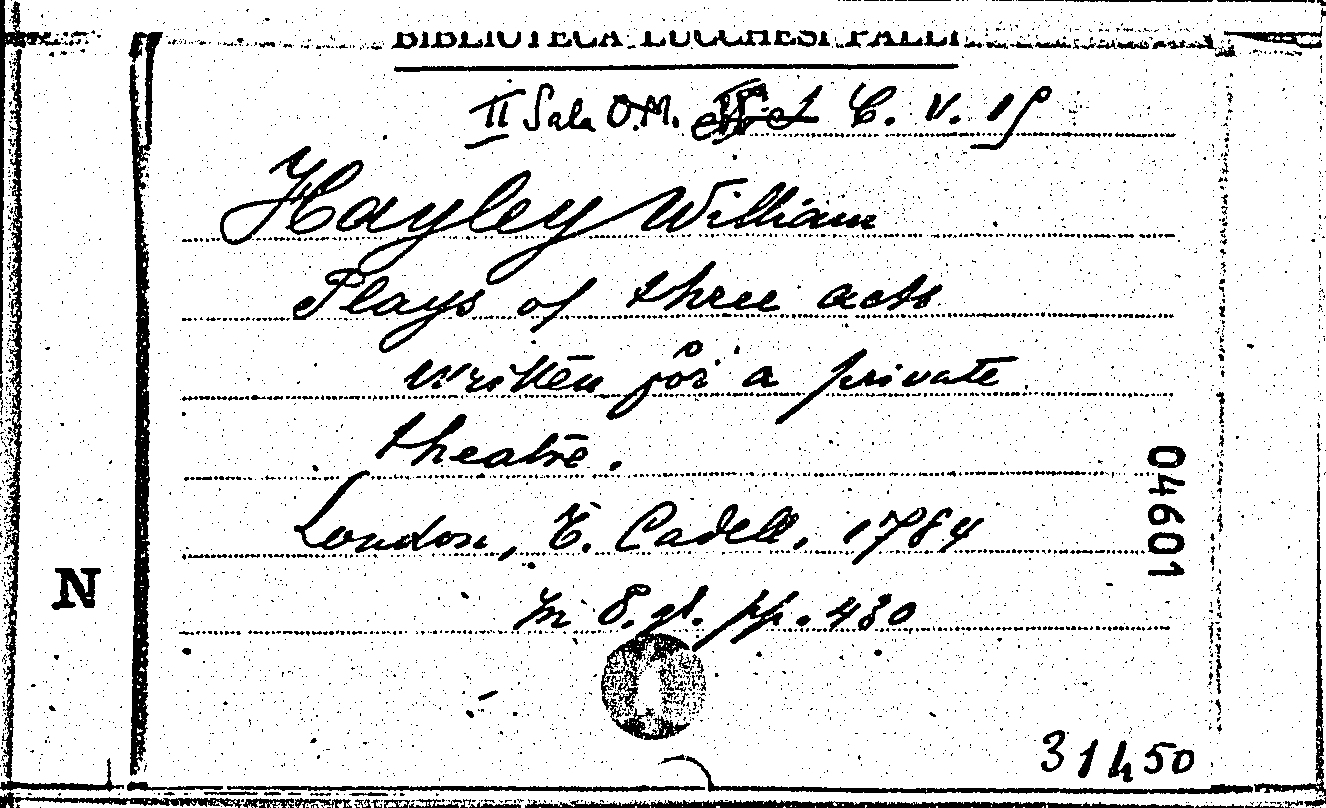 BIBLIOTECA LUCCHESI PALLI
II Sala O.M. C. V. 15
Hayley William
Plays of three acts
written for a private
theatre.
London, E. Cadell, 1784
in 8. gr. pp. 430
04601
N
31450